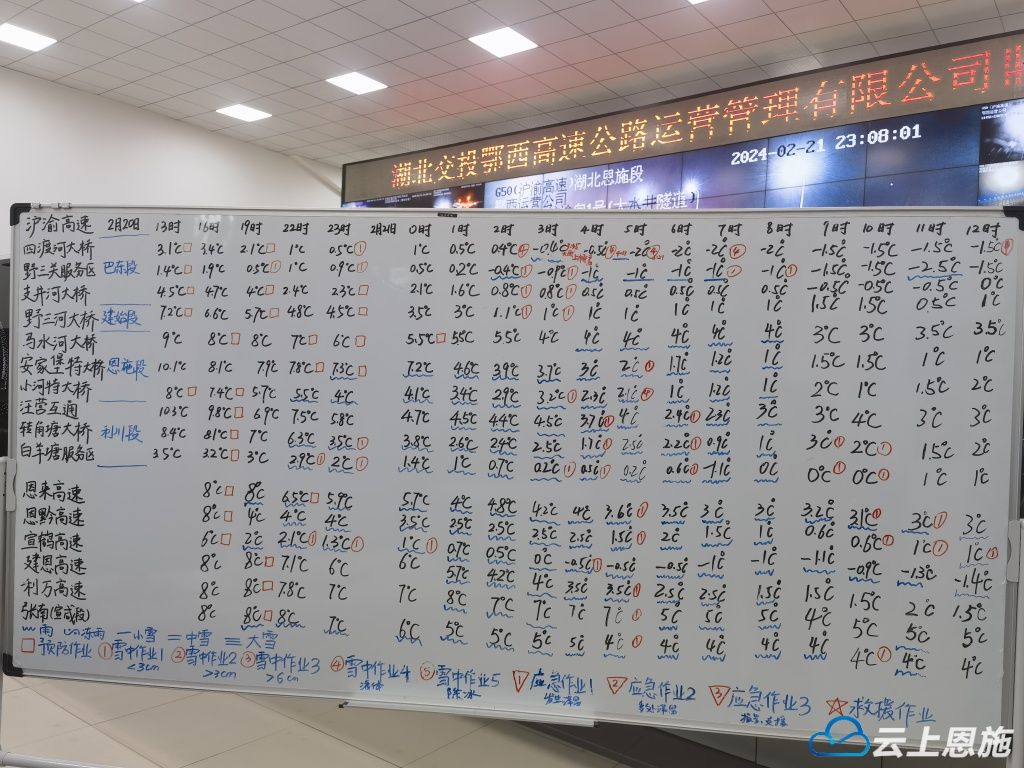 湖北交投鄂西高速公路运营管理有限公司
2024-02-21 23:08:01
G50(沪渝高速)湖北恩施段
沪渝高速 2月20日 13时 16时 19时 22时 23时 2月21日 0时 1时 2时 3时 4时 5时 6时 7时 8时 9时 10时 11时 12时
四渡河大桥 3.1℃ 3.4℃ 2.1℃ 1℃ 0.5℃① 1℃ 0.5℃ 0.4℃ -0.4℃ -0.5℃ -2℃ -2℃ -2℃ -2℃ -1.5℃ -1.5℃ -1.5℃ -1.5℃
野三关服务区 巴东段 1.4℃ 1.9℃ 0.5℃① 1℃ 0.9℃① 0.5℃ 0.2℃ -0.4℃① -0.9℃① -1℃ -1℃ -1℃ -1℃① -1℃① -1.5℃ -1.5℃ -2.5℃ -1.5℃
支井河大桥 4.5℃ 4.7℃ 4℃ 2.4℃ 2.3℃ 2.1℃ 1.6℃ 0.8℃① 0.8℃① 0.5℃ 0.5℃ 0.5℃ 0.5℃ 0.5℃ -0.5℃ -0.5℃ -0.5℃ 0℃
野三河大桥 建始段 7.2℃ 6.6℃ 5.7℃ 4.8℃ 4.5℃ 3.5℃ 3℃ 1.1℃① 1℃① 1℃ 1℃ 1℃ 1℃ 1℃ 1.5℃ 1.5℃ 0.5℃ 1℃
马水河大桥 9℃ 8℃ 8℃ 7℃ 6℃ 5.5℃ 5.5℃ 5.5℃ 4℃ 4℃ 4℃ 4℃ 4℃ 4℃ 3℃ 3℃ 3.5℃ 3.5℃
安家堡特大桥 恩施段 10.1℃ 8.1℃ 7.9℃ 7.8℃ 7.3℃ 7.2℃ 4.6℃ 3.9℃ 3.7℃ 3℃ 2℃① 1.7℃ 1.2℃ 1℃ 1.5℃ 1.5℃ 1℃ 1℃
小河特大桥 8℃ 7.4℃ 5.7℃ 5.5℃ 4℃ 4.1℃ 3.4℃ 2.9℃ 3.2℃① 2.3℃ 2.1℃ 1℃ 1.2℃ 1℃ 2℃ 1℃ 1.5℃ 2℃
汪营互通 10.3℃ 9.8℃ 6.9℃ 7.5℃ 5.8℃ 4.7℃ 4.5℃ 4.4℃ 4.5℃ 3.7℃ 4℃ 2.9℃① 2.3℃ 3℃ 3℃ 4℃ 3℃ 3℃
转角塘大桥 利川段 8.4℃ 8.1℃ 7℃ 6.3℃ 3.5℃① 3.8℃ 2.6℃ 2.4℃ 2.5℃ 1.7℃① 2.5℃ 2.2℃① 0.9℃ 1℃ 3℃① 2℃① 1.5℃ 2℃
白羊塘服务区 3.5℃ 3.2℃ 3℃ 2.9℃① 2℃① 1.4℃ 1℃ 0.7℃ 0.2℃① 0.5℃① 0.2℃ 0.6℃① -1.1℃ 0℃ 0℃① 0℃① 1℃ 1℃
恩来高速 8℃ 8℃ 6.5℃ 5.9℃ 5.7℃ 4℃ 4.8℃ 4.2℃ 4℃ 3.6℃① 3.5℃ 3℃ 3℃ 3.2℃ 3.1℃① 3℃① 3℃
恩黔高速 8℃ 4℃ 4℃ 4℃ 3.5℃ 2.5℃ 2.5℃ 2.5℃ 2.5℃ 1.5℃① 2℃ 1.5℃ 1℃ 0.6℃ 0.6℃① 1℃① 1℃①
宣鹤高速 6℃ 2℃ 2.1℃① 1.3℃① 1℃① 0.7℃ 0.5℃ 0℃ -0.5℃① -0.5℃ -0.5℃ -1℃ -1℃ -1.1℃ -0.9℃ -1.3℃ -1.4℃
建恩高速 8℃ 8℃ 7.1℃ 6℃ 6℃ 5.7℃ 4.2℃ 4℃ 3.5℃ 3.5℃① 2.5℃ 2.5℃ 1.5℃ 1.5℃ 1.5℃ 2℃ 1.5℃
利万高速 8℃ 8℃ 7.8℃ 7℃ 7℃ 8℃ 7℃ 7℃ 7℃ 7℃① 5℃ 5℃ 5℃ 4℃ 5℃ 5℃ 5℃
张南(宣咸段) 8℃ 8℃ 8℃ 7℃ 6℃ 5℃ 5℃ 5℃ 5℃ 4℃① 4℃ 4℃ 4℃ 4℃ 4℃① 4℃ 4℃
雨 冻雨 一小雪 二中雪 三大雪
预防作业 ①雪中作业1 ②雪中作业2 ③雪中作业3 ④雪中作业4 ⑤雪中作业5 1应急作业1 2应急作业2 3应急作业3 救援作业
<3cm >3cm >6cm 除冰
云上恩施